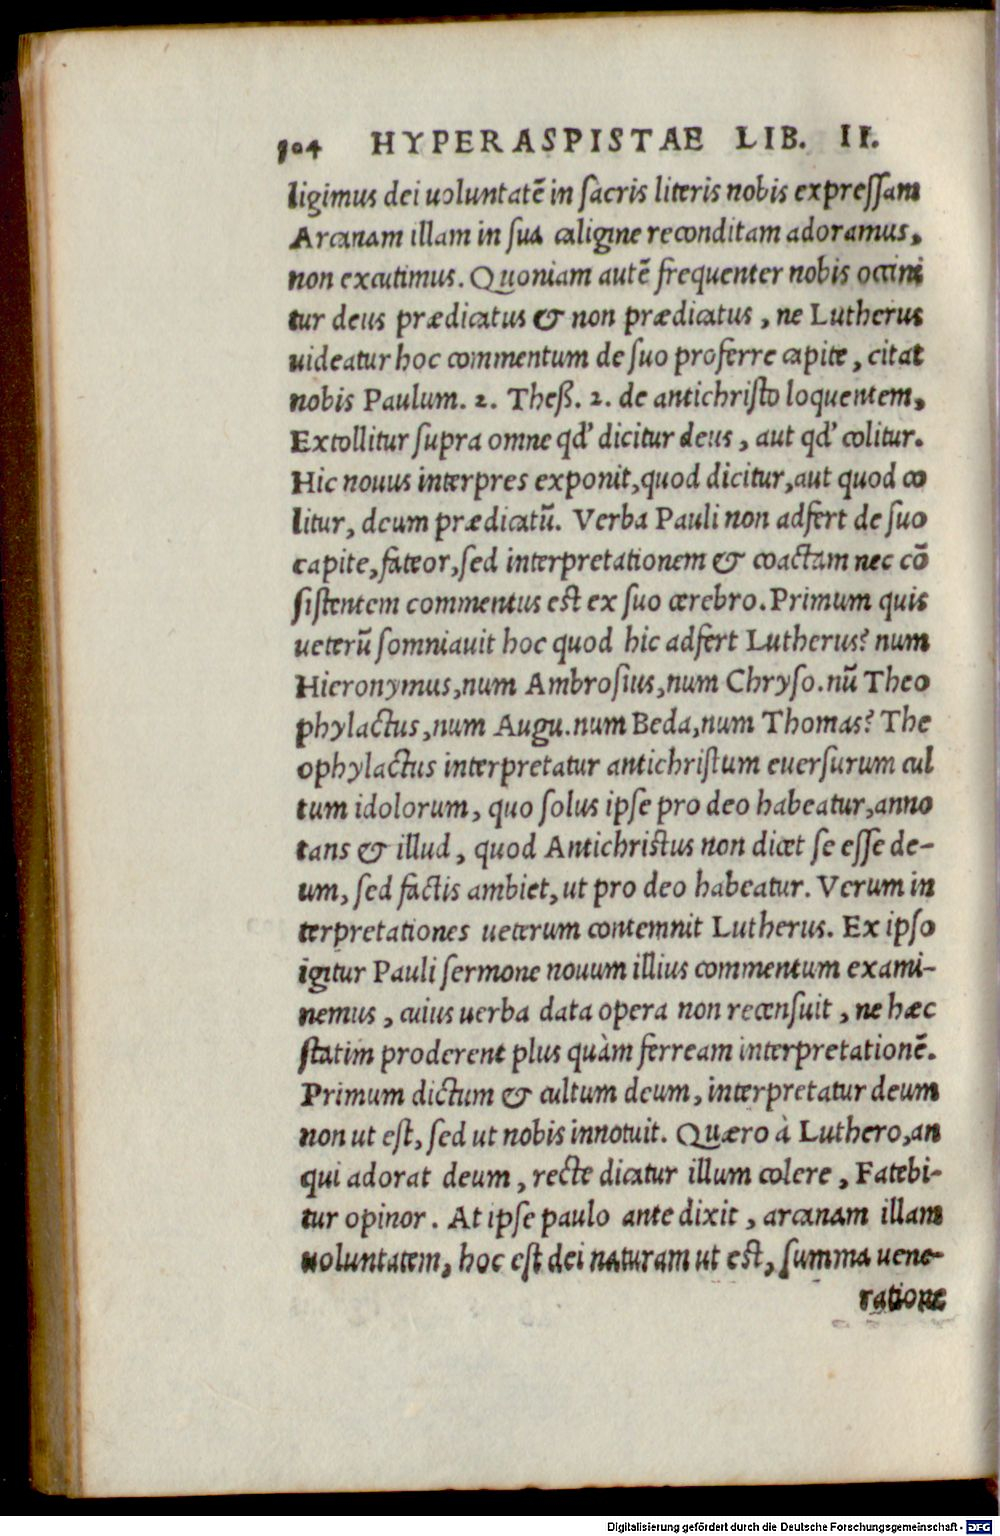 504 HYPERASPISTAE LIB. II.
ligimus dei uoluntatē in sacris literis nobis expressam
Arcanam illam in sua caligine reconditam adoramus,
non excutimus. Quoniam autē frequenter nobis occini
tur deus prædicatus & non prædicatus, ne Lutherus
uideatur hoc commentum de suo proferre capite, citat
nobis Paulum. 2. Theß. 2. de antichristo loquentem,
Extollitur supra omne qd' dicitur deus, aut qd' colitur.
Hic nouus interpres exponit,quod dicitur,aut quod co
litur, deum prædicatū. Verba Pauli non adfert de suo
capite,fateor,sed interpretationem & coactam nec cō
sistentem commentus est ex suo cerebro.Primum quis
ueterū somniauit hoc quod hic adfert Lutherus? num
Hieronymus,num Ambrosius,num Chryso.nū Theo
phylactus,num Augu.num Beda,num Thomas? The
ophylactus interpretatur antichristum euersurum cul
tum idolorum, quo solus ipse pro deo habeatur,anno
tans & illud, quod Antichristus non dicet se esse de-
um, sed factis ambiet,ut pro deo habeatur. Verum in
terpretationes ueterum contemnit Lutherus. Ex ipso
igitur Pauli sermone nouum illius commentum exami-
nemus, cuius uerba data opera non recensuit, ne hæc
statim proderent plus quàm ferream interpretationē.
Primum dictum & cultum deum, interpretatur deum
non ut est, sed ut nobis innotuit. Quæro à Luthero,an
qui adorat deum, recte dicatur illum colere, Fatebi-
tur opinor. At ipse paulo ante dixit, arcanam illam
uoluntatem, hoc est dei naturam ut est, summa uene-
ratione
Digitalisierung gefördert durch die Deutsche Forschungsgemeinschaft - DFG